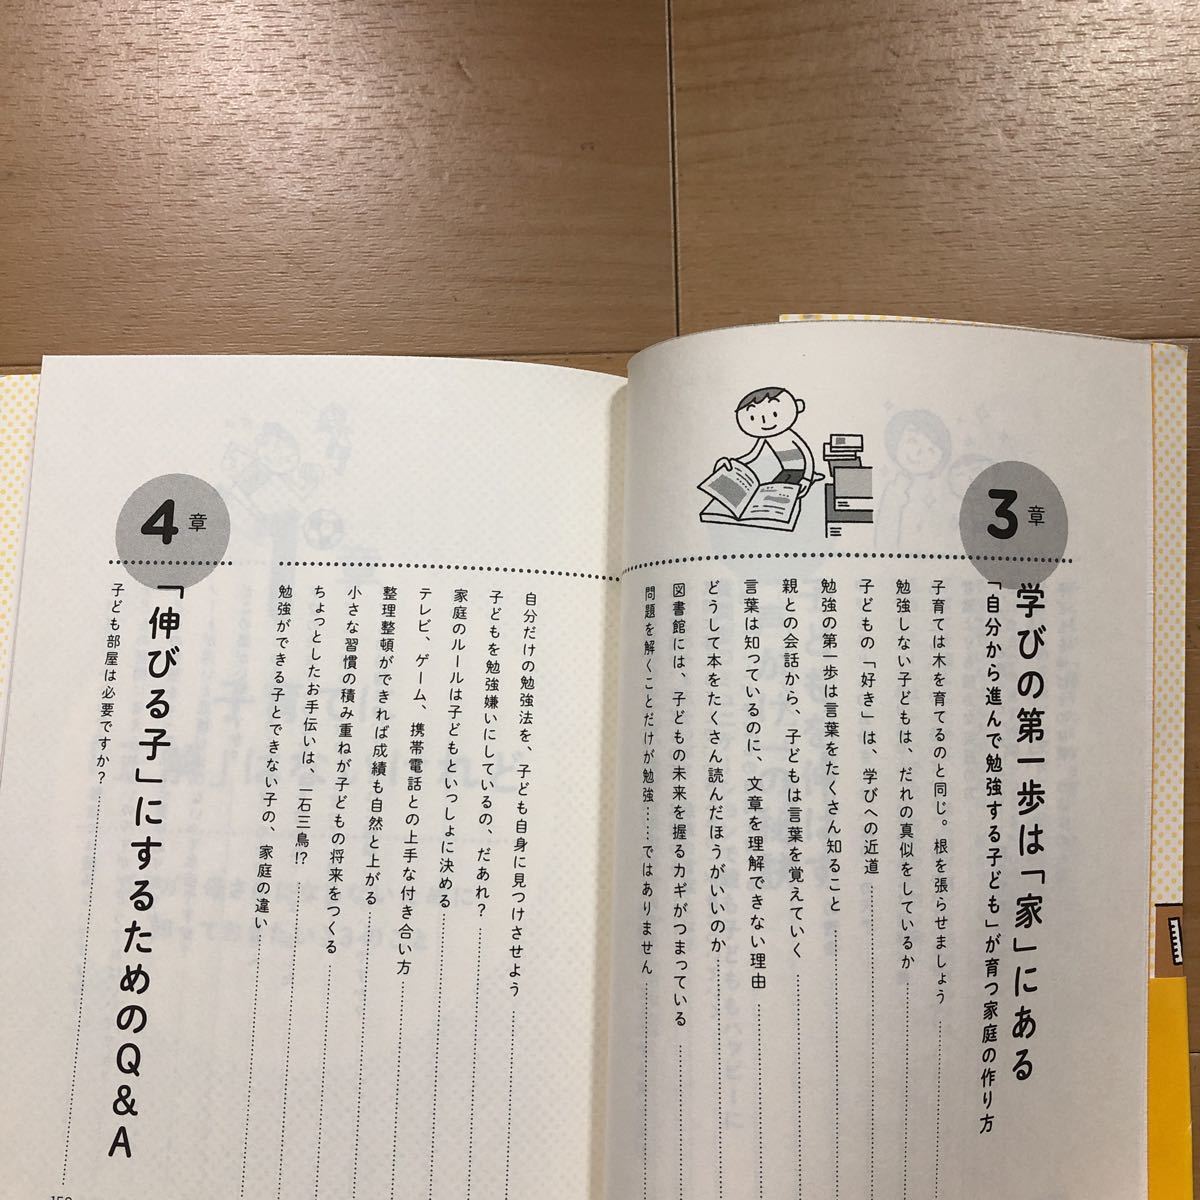 3章
学びの第一歩は「家」にある
「自分から進んで勉強する子ども」が育つ家庭の作り方
子育ては木を育てるのと同じ。根を張らせましょう
勉強しない子どもは、だれの真似をしているか
子どもの「好き」は、学びへの近道
勉強の第一歩は言葉をたくさん知ること
親との会話から、子どもは言葉を覚えていく
言葉は知っているのに、文章を理解できない理由
どうして本をたくさん読んだほうがいいのか
図書館には、子どもの未来を握るカギがつまっている
問題を解くことだけが勉強……ではありません
自分だけの勉強法を、子ども自身に見つけさせよう
子どもを勉強嫌いにしているの、だあれ？
家庭のルールは子どもといっしょに決める
テレビ、ゲーム、携帯電話との上手な付き合い方
整理整頓ができれば成績も自然と上がる
小さな習慣の積み重ねが子どもの将来をつくる
ちょっとしたお手伝いは、一石三鳥!?
勉強ができる子とできない子の、家庭の違い
4章
「伸びる子」にするためのQ&A
子ども部屋は必要ですか？